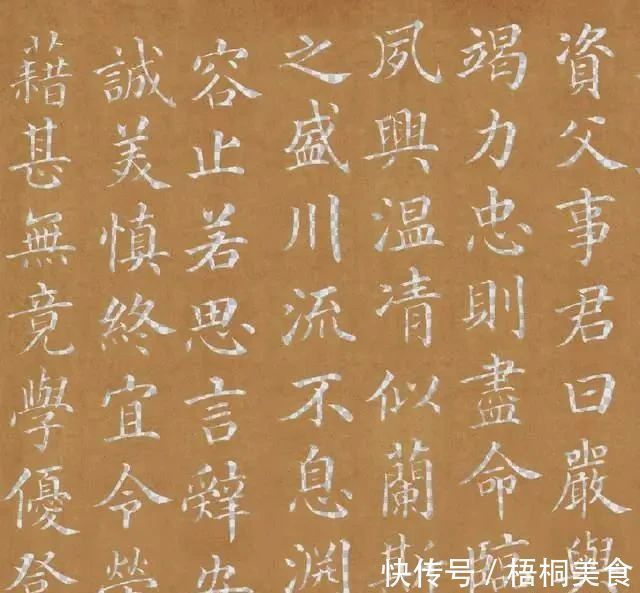 資父事君曰嚴與
竭力忠則盡命臨
夙興温凊似蘭斯
之盛川流不息淵
容止若思言辤安
誠美慎終宜令榮
藉甚無竟學優登
快传号／梧桐美食